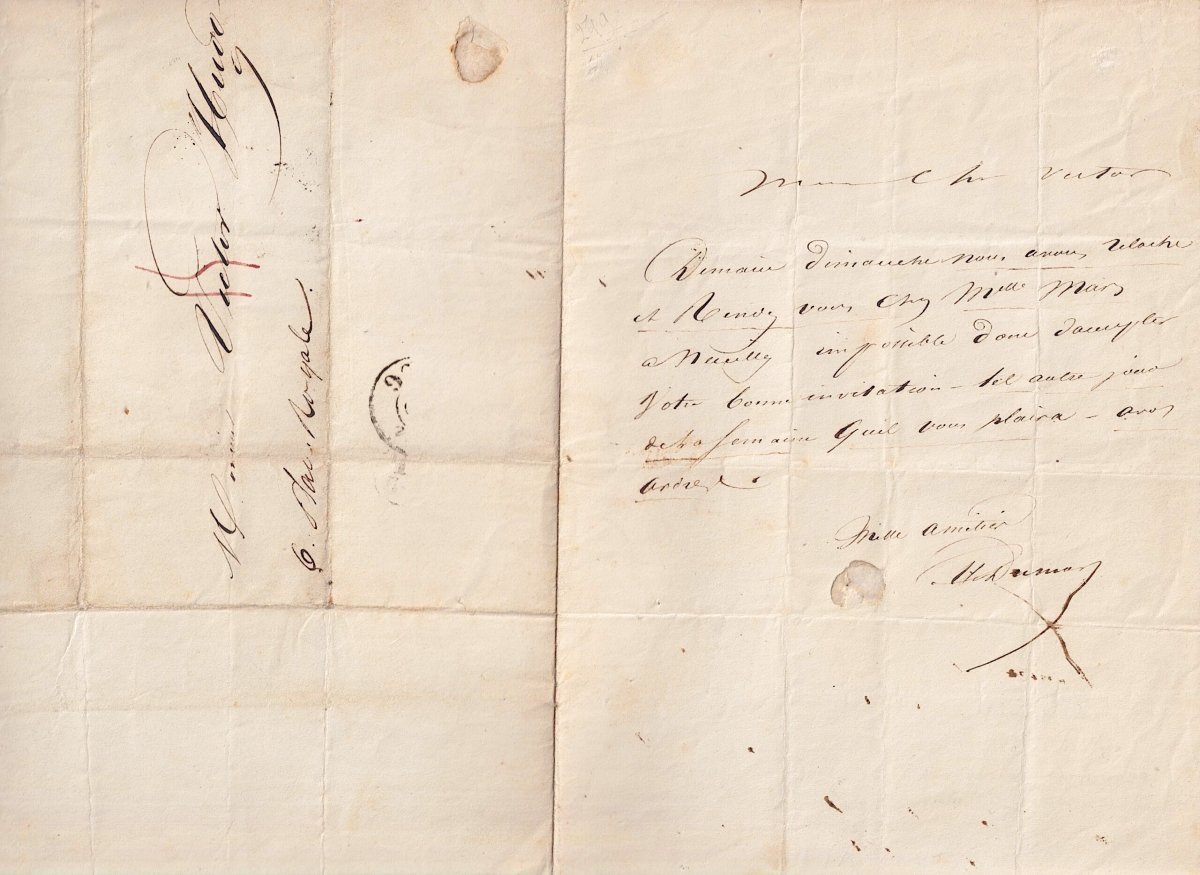 Monsieur Victor Hugo
6. Place Royale.
Mon Cher Victor
Demain dimanche nous avons relache
et Rendez vous chez Melle Mars
a Neuilly impossible donc daccepter
Votre bonne invitation - tel autre jour
de la semaine quil vous plaira - a vos
ordres
Mille amitiés
Al Dumas